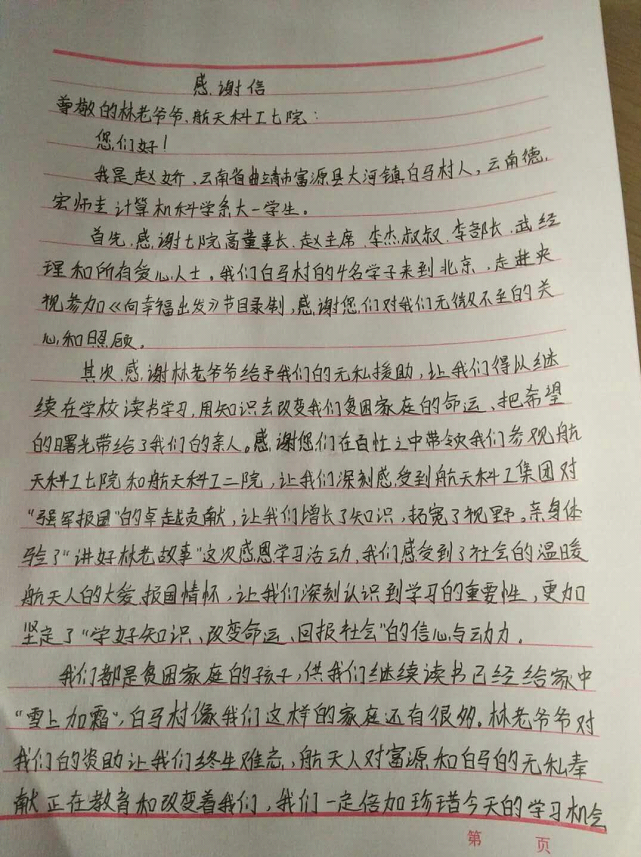 感谢信
尊敬的林老爷爷、航天科工七院：
您们好！
我是赵娇、云南省曲靖市富源县大河镇白马村人，云南德
宏师专计算机科学系大一学生。
首先，感谢七院高董事长、赵主席、李杰叔叔、李部长、武经
理和所有爱心人士，我们白马村的4名学子来到北京，走进央
视参加《向幸福出发》节目录制，感谢您们对我们无微不至的关
心和照顾。
其次，感谢林老爷爷给予我们的无私援助，让我们得以继
续在学校读书学习，用知识去改变我们贫困家庭的命运、把希望
的曙光带给了我们的亲人。感谢您们在百忙之中带领我们参观航
天科工七院和航天科工二院，让我们深刻感受到航天科工集团对
“强军报国”的卓越贡献，让我们增长了知识，拓宽了视野。亲身体
验了“讲好林老故事”这次感恩学习活动，我们感受到了社会的温暖
航天人的大爱、报国情怀，让我们深刻认识到学习的重要性，更加
坚定了“学好知识、改变命运、回报社会”的信心与动力。
我们都是贫困家庭的孩子，供我们继续读书已经给家中
“雪上加霜”，白马村像我们这样的家庭还有很多。林老爷爷对
我们的资助让我们终生难忘，航天人对富源和白马的无私奉
献正在教育和改变着我们，我们一定倍加珍惜今天的学习机会
第 页